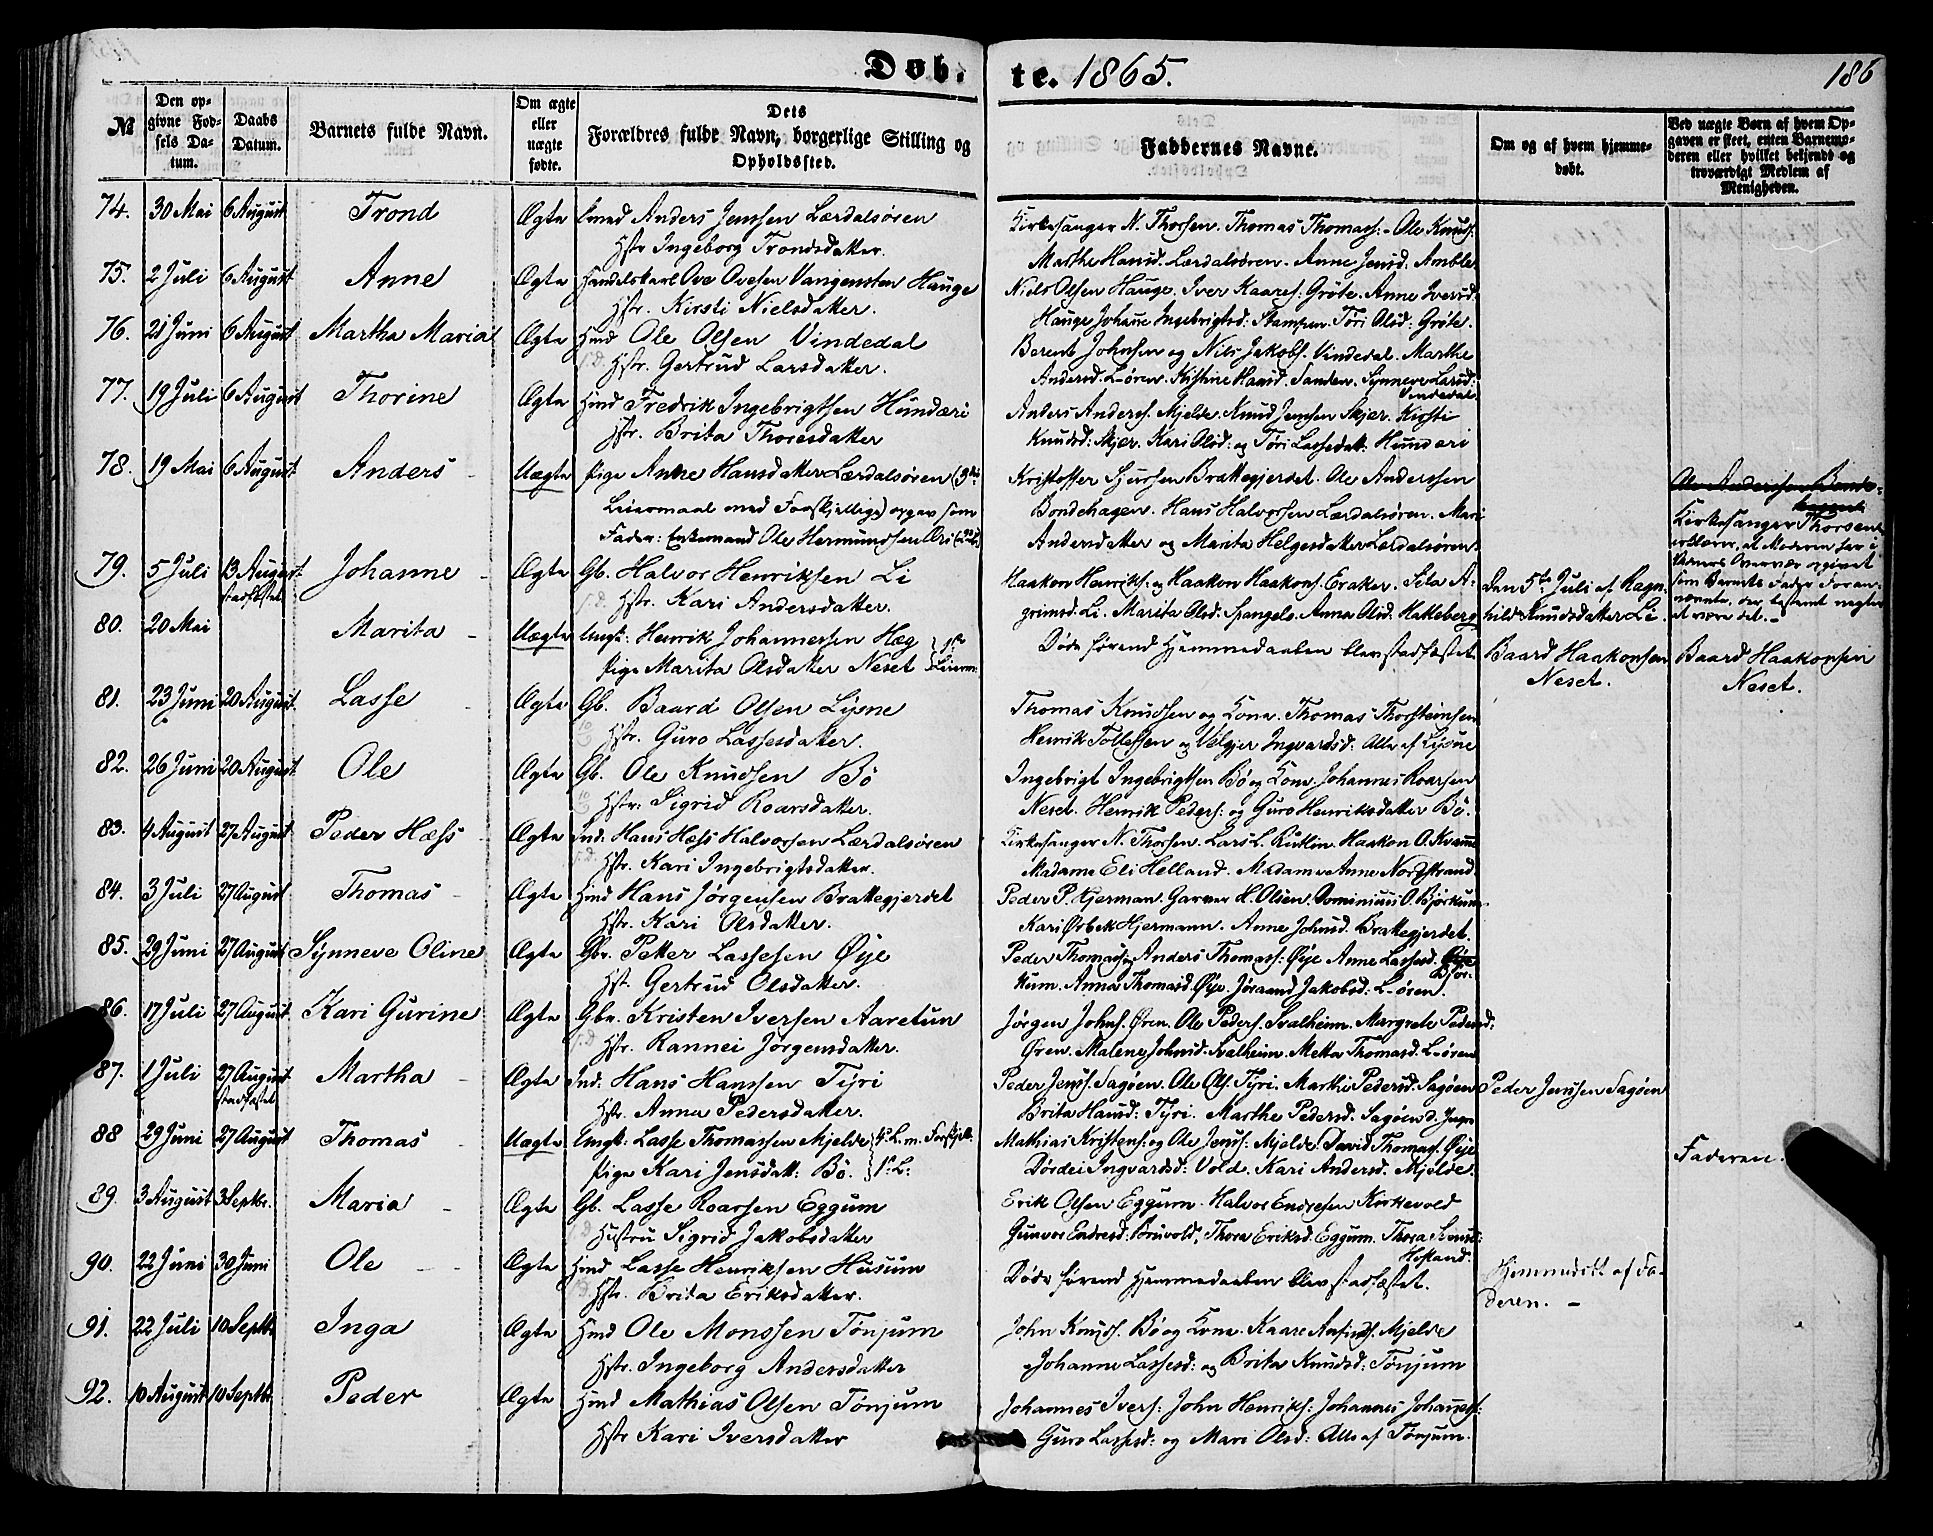 Døb. te. 1865. 186
№
Den opgivne Fødsels Datum.
Daabs Datum.
Barnets fulde Navn.
Om ægte eller uægte fødte.
Dets Forældres fulde Navn, borgerlige Stilling og Opholdssted.
Faddernes Navne.
Om og af hvem hjemmedøbt.
Ved uægte Børn af hvem Opgaven er skeet, enten Barnemoderen eller hvilket bekjendt og troværdigt Medlem af Menigheden.
74. 30 Mai 6 August Trond Ægte Smed Anders Jenssen Lærdalsøren
Hstr Ingeborg Trondsdatter.
Kirkesanger N. Thorsen. Thomas Thomass: Ole Knuds:
Marthe Hansd. Lærdalsøren. Anne Jensd: Amble
75. 2 Juli 6 August Anne Ægte Handelskarl Ove Ovesen Vangensten Hauge
Hstr. Kirsti Nielsdatter.
Niels Olsen Hauge. Iver Kaares: Grøte. Anne Iversd:
Hauge Johane Ingebrigtsd: Stampen. Tøri Olsd: Grøte.
76. 21 Juni 6 August Martha Maria Ægte Hmd Ole Olsen Vindedal
Hstr. Gertrud Larsdatter.
Berent Johnsen og Nils Jakobs. Vindedal. Marthe
Andersd. L-øren. Kistine Hansd. Sanden. Synneve Larsd:
Vindedal.
77. 19 Juli 6 August Thorine Ægte Hmd Fredrik Ingebrigtsen Hunderi
Hstr. Brita Thoresdatter
Anders Anders. Mjelde. Knud Jenssen Skjer. Kirsti
Knudsd: Skjer. Kari Olsd: og Tøri Lassedatt: Hunderi
78. 19 Mai 6 August Anders Uægte Pige Anne Hansdatter Lærdalsøren (3die
Leiermaal med Forskjellige) opgav som
Fader: Enkemand Ole Hermundsen Øri (2det)
Kristoffer Sjursen Brattegjerdet. Ole Anderssen
Bondehagen. Hans Halvorsen Lærdalsøren. Mari
Andersdatter og Marita Helgesdatter Lærdalsøren
Ole Andersen Bonde-
hagen
Kirkesanger Thorsen
erklærer, at Moderen har i
Barnets Fader Foran-
nævnte, der bestemt negter
at være det.
79. 5 Juli 13 August stadfæstet Johanne Ægte Gb. Halvor Henriksen Li
Hstr. Kari Andersdatter.
Haakon Henriks: og Haakon Haakons. Eraker. Sila A-
grimsd: Li. Marita Olsd: Spangelo. Anna Olsd: Hatleberg
Den 5te Juli af Ragn-
hild Knudsdatter Li.
80. 20 Mai Marita Uægte Ungk: Henrik Johannessen Hæg
Pige Marita Olsdatter Neset } 1ste Leierm.
Døde førend Hjemmedaaben blev stadfæstet
Baard Haakonsen
Neset.
Baard Haakonsen
Neset.
81. 23 Juni 20 August Lasse Ægte Gb. Baard Olsen Lysne
Hstr. Guro Lassesdatter.
Thomas Knudsen og Kone. Thomas Thorsteinsen
Henrik Tollefsen og Velgjer Ingvardsd: Alle af Lysne
82. 26 Juni 20 August Ole Ægte Gb. Ole Knudsen Bø
Hstr: Sigrid Roarsdatter.
Ingebrigt Ingebrigtsen Bø og Kone. Johannes Roarsen
Neset. Henrik Peders: og Guro Henriksdatter Bø.
83. 4 August 27 August Peder Hæss Ægte Ind. Hans Hess Halvorsen Lærdalsøren
Hstr. Kari Ingebrigtsdatter.
Kirkesanger N. Thorsen. Lars L. Rutlin. Haakon O. Kvamme
Madame Eli Helland. Madame Anne Nordstrand.
84. 3 Juli 27 August Thomas Ægte Hmd Hans Jørgensen Brattegjerdet
Hstr. Kari Olsdatter.
Peder P. Hjerman. Garver H. Olsen. Dominicus O. Bjørkum.
Kari Ørbek Hjermann. Anne Johnsd. Brattegjerdet.
85. 29 Juni 27 August Synneve Oline Ægte Gbr. Petter Lassesen Øye
Hst. Gertrud Olsdatter.
Peder Thomass og Anders Thomass: Øye Anne Lassesd. Øye Bjør-
kum. Anna Thomasd. Øye. Jøraand Jakobsd: L-øren.
86. 17 Juli 27 August Kari Gurine Ægte Gbr. Kristen Iversen Aaretun
Hstr. Rannei Jørgensdatter.
Jørgen Johns. Øren. Ole Peders. Svalheim. Margrete Pedersd:
Øren. Malene Johnsd: Svalheim. Metta Thomasd. L-øren
87. 1 Juli 27 August stadfæstet Martha Ægte Ind. Hans Hanssen Tyri
Hstr. Anna Pedersdatter.
Peder Jenss. Sagøen. Ole Ols. Tyri. Marthe Pedersd. Sagøen
Brita Hansd: Tyri. Marthe Pedersd: Sagøen d. Yngre
Peder Jenssen Sagøen
88 29 Juni 27 August Thomas Uægte Ungk: Lasse Thomassen Mjelde } 4de L. m. Forskjell.
Pige Kari Jensdatt: Bø. } 1ste L:
Mathias Kristens: og Ole Jenss: Mjelde. David Thomass. Øye
Dørdei Ingvardsd: Vold. Kari Andersd. Mjelde.
Faderen.
89. 3 August 3 Septbr. Maria Ægte Gb. Lasse Roarsen Eggum
Hustru Sigrid Jakobsdatter
Erik Olsen Eggum. Halvor Endresen Kirkevold
Gunvor Endresd: Bruvold. Thora Eriksd. Eggum. Thora Knudsd:
Hofland.
90. 22 Juni 30 Juni Ole Ægte Hmd Lasse Henriksen Husum
Hstr. Brita Eriksdatter.
Døde førend Hjemmedaaben blev stadfæstet.
Hjemmedøbt af Fa-
deren.
91. 22 Juli 10 Septbr Inga Ægte Hmd Ole Monssen Tønjum
Hstr. Ingeborg Andersdatter
John Knuds. Bø og Kone. Kaare Anfinds. Mjelde
Johanne Lassesd: og Brita Knudsd: Tønjum
92. 10 August 10 Septbr Peder Ægte Hmd Mathias Olsen Tønjum
Hstr Kari Iversdatter
Johannes Ivers: John Henriks: Johannes Johanness:
Guro Lassesd: og Mari Olsd: Alle af Tønjum.